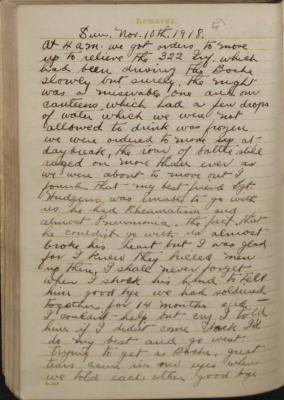 Remarks.
Sun. Nov. 10th. 1918.
At 4 a.m. we got orders to move
up to relieve the 322 Inf. which
had been driving the Boche
slowly but surely, the night
was a miserable one and our
canteens, which had a few drops
of water which we were not
allowed to drink was frozen
we were ordered to move up at
daybreak, the roar of battle still
raged on more than ever as
we were about to move out I
found that my best friend Sgt
Hudgens, was unable to go with
us he had Rheumatism and
almost Pneumonia. the fact that
he couldnt go with us almost
broke his heart but I was glad
for I knew they killed men
up there, I shall never forget
when I shook his hand to tell
him good bye we had soldiered
together for 14 months and
I couldnt help but cry I told
him if I didnt come back I'd
do my best and go west
trying to get a Boche, great
tears came in our eyes when
we told each other good bye